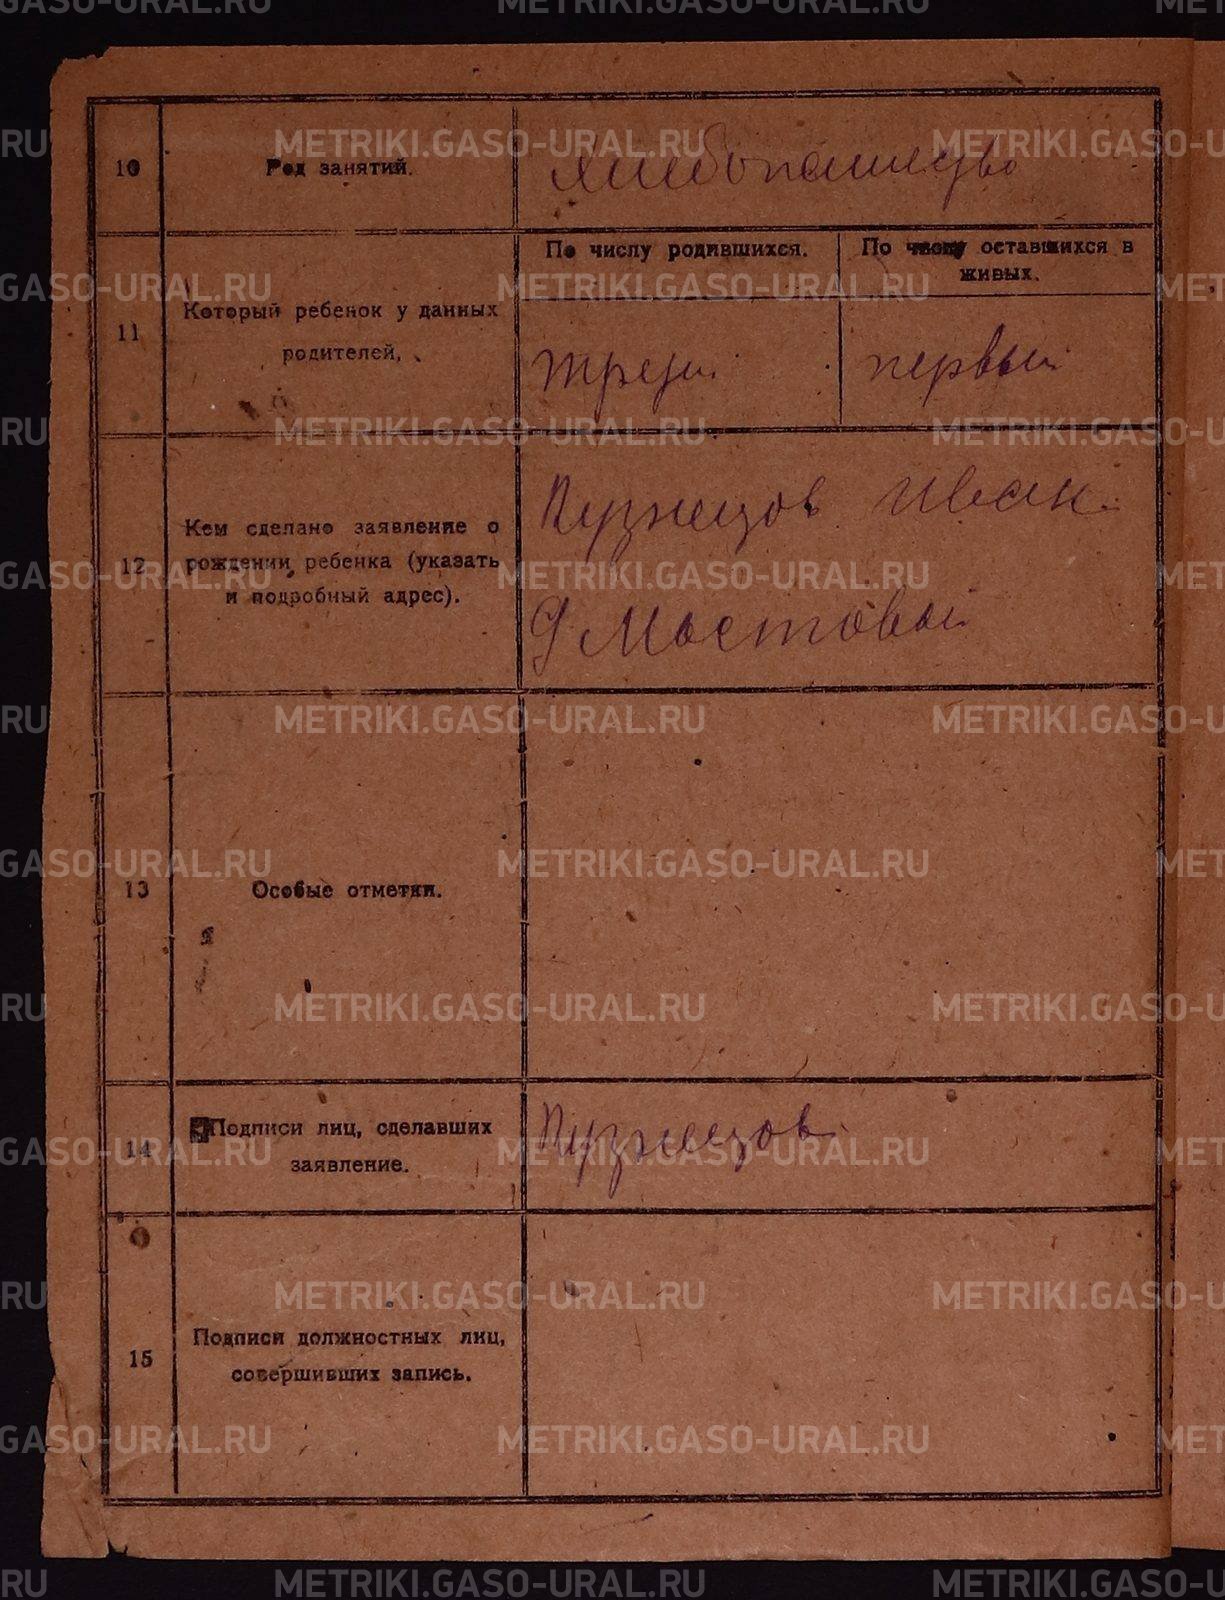 10
Род занятий.
Хлебопашество
11
Который ребенок у данных
родителей,
По числу родившихся.
По числу оставшихся в
живых.
трети
первый
12
Кем сделано заявление о
рождении ребенка (указать
и подробный адрес).
Кузнецов Иван
д Мостовой
13
Особые отметки.
14
Подписи лиц, сделавших
заявление.
Кузнецов
15
Подписи должностных лиц,
совершивших запись.
METRIKI.GASO-URAL.RU